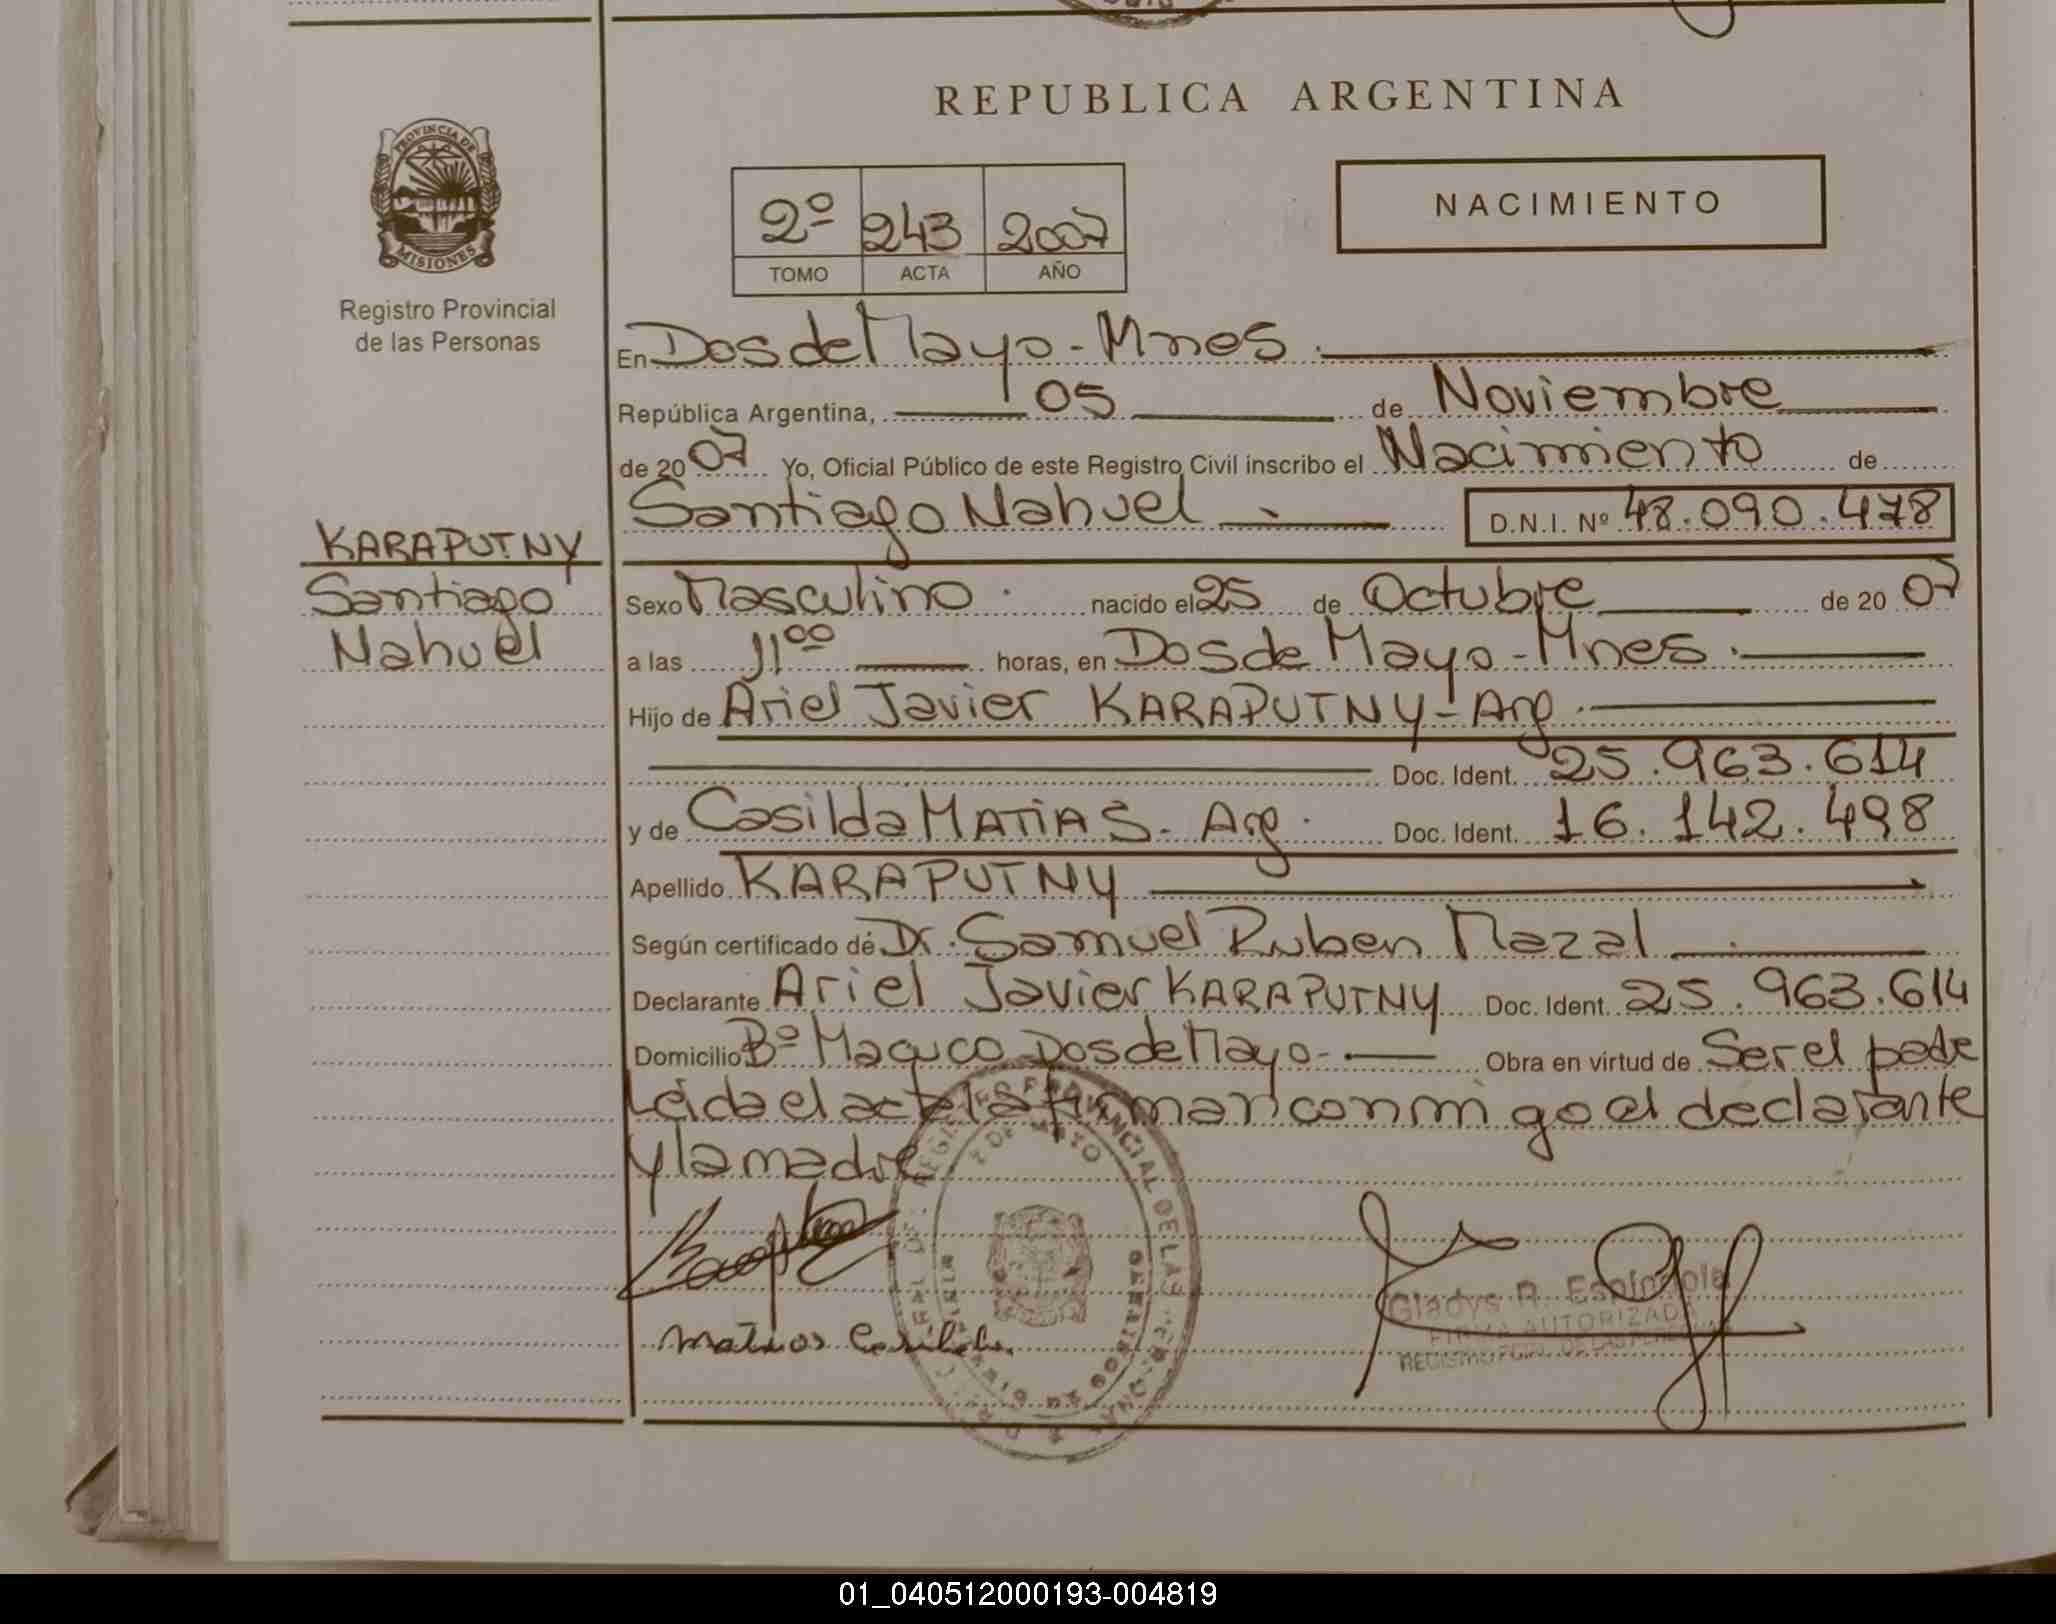 REPUBLICA ARGENTINA
PROVINCIA DE
MISIONES
Registro Provincial
de las Personas
2º 243 2007
TOMO ACTA AÑO
NACIMIENTO
En Dos de Mayo - Mnes.
República Argentina, 05 de Noviembre
de 2007 Yo, Oficial Público de este Registro Civil inscribo el Nacimiento de
Santiago Nahuel D.N.I. Nº 48.090.478
KARAPUTNY
Santiago
Nahuel
Sexo Masculino. nacido el 25 de Octubre de 2007
a las 11⁰⁰ horas, en Dos de Mayo - Mnes.
Hijo de Ariel Javier KARAPUTNY - Arg.
Doc. Ident. 25.963.614
y de Casilda MATIAS - Arg. Doc. Ident. 16.142.498
Apellido KARAPUTNY
Según certificado de Dr. Samuel Ruben Mazal
Declarante Ariel Javier KARAPUTNY Doc. Ident. 25.963.614
Domicilio Bº Macuco Dos de Mayo - Obra en virtud de Ser el padre
Leída el acta la firman conmigo el declarante
y la madre
Matias Casilda
Gladys R. Espindola
FIRMA AUTORIZADA
01_040512000193-004819